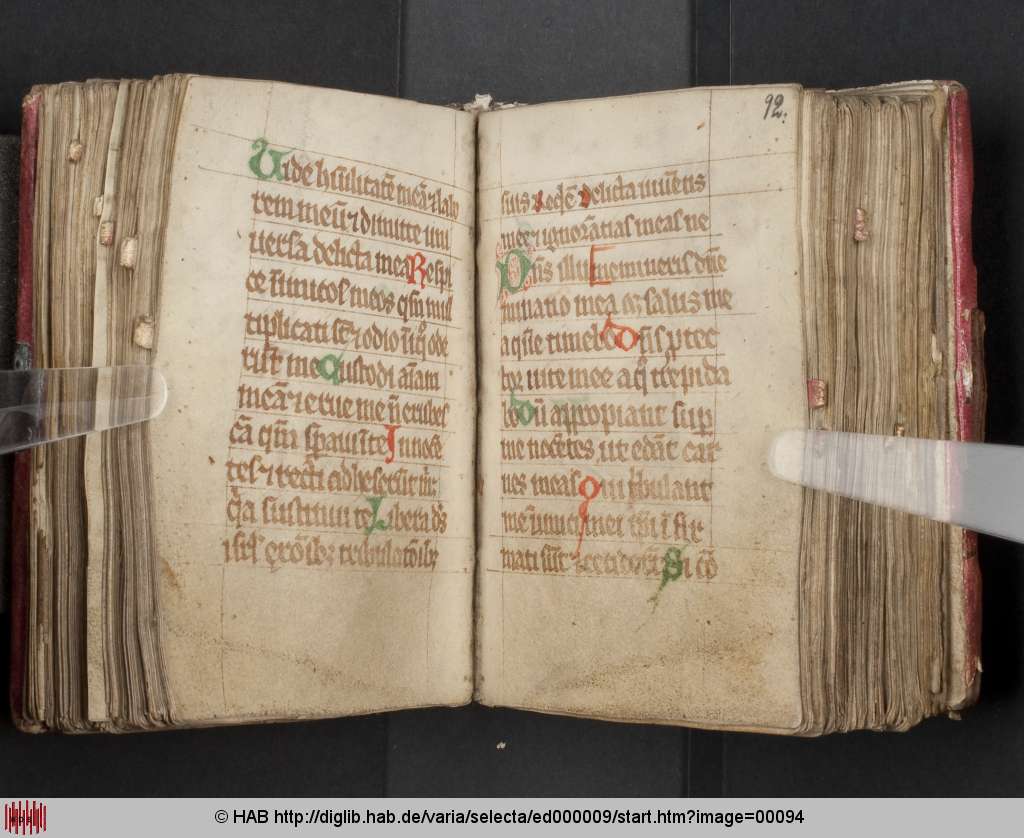 Vide hūilitatē meā ⁊ labo
rem meū ⁊ dimitte uni
uersa delicta mea Respi
ce īimicos meos qm̄ mul
tiplicati sūt ⁊ odio īiqͦ ode
rūt me Custodi aīam
meā ⁊ erue me nō erubes
cā qm̄ sꝑaui ī te Innocē
tes ⁊ recti adheserūt m̄
qͣa sustinui te Libera ds̄
isrl̄ ex oīb; tribulatōib;
suis delicta iuuētis
mee ⁊ ignorātias meas ne
illumī
minatio mea ⁊ salus me
a quē timebo Dn̄s ꝓtec
tor uite mee a qͦ trepida
bo Dū appropiant suꝑ
me nocētes ut edāt car
nes meas Qui tͥbulant
me īimici mei ipī īfir
mati sūt ⁊ ceciderūt Si cō
92.
© HAB http://diglib.hab.de/varia/selecta/ed000009/start.htm?image=00094